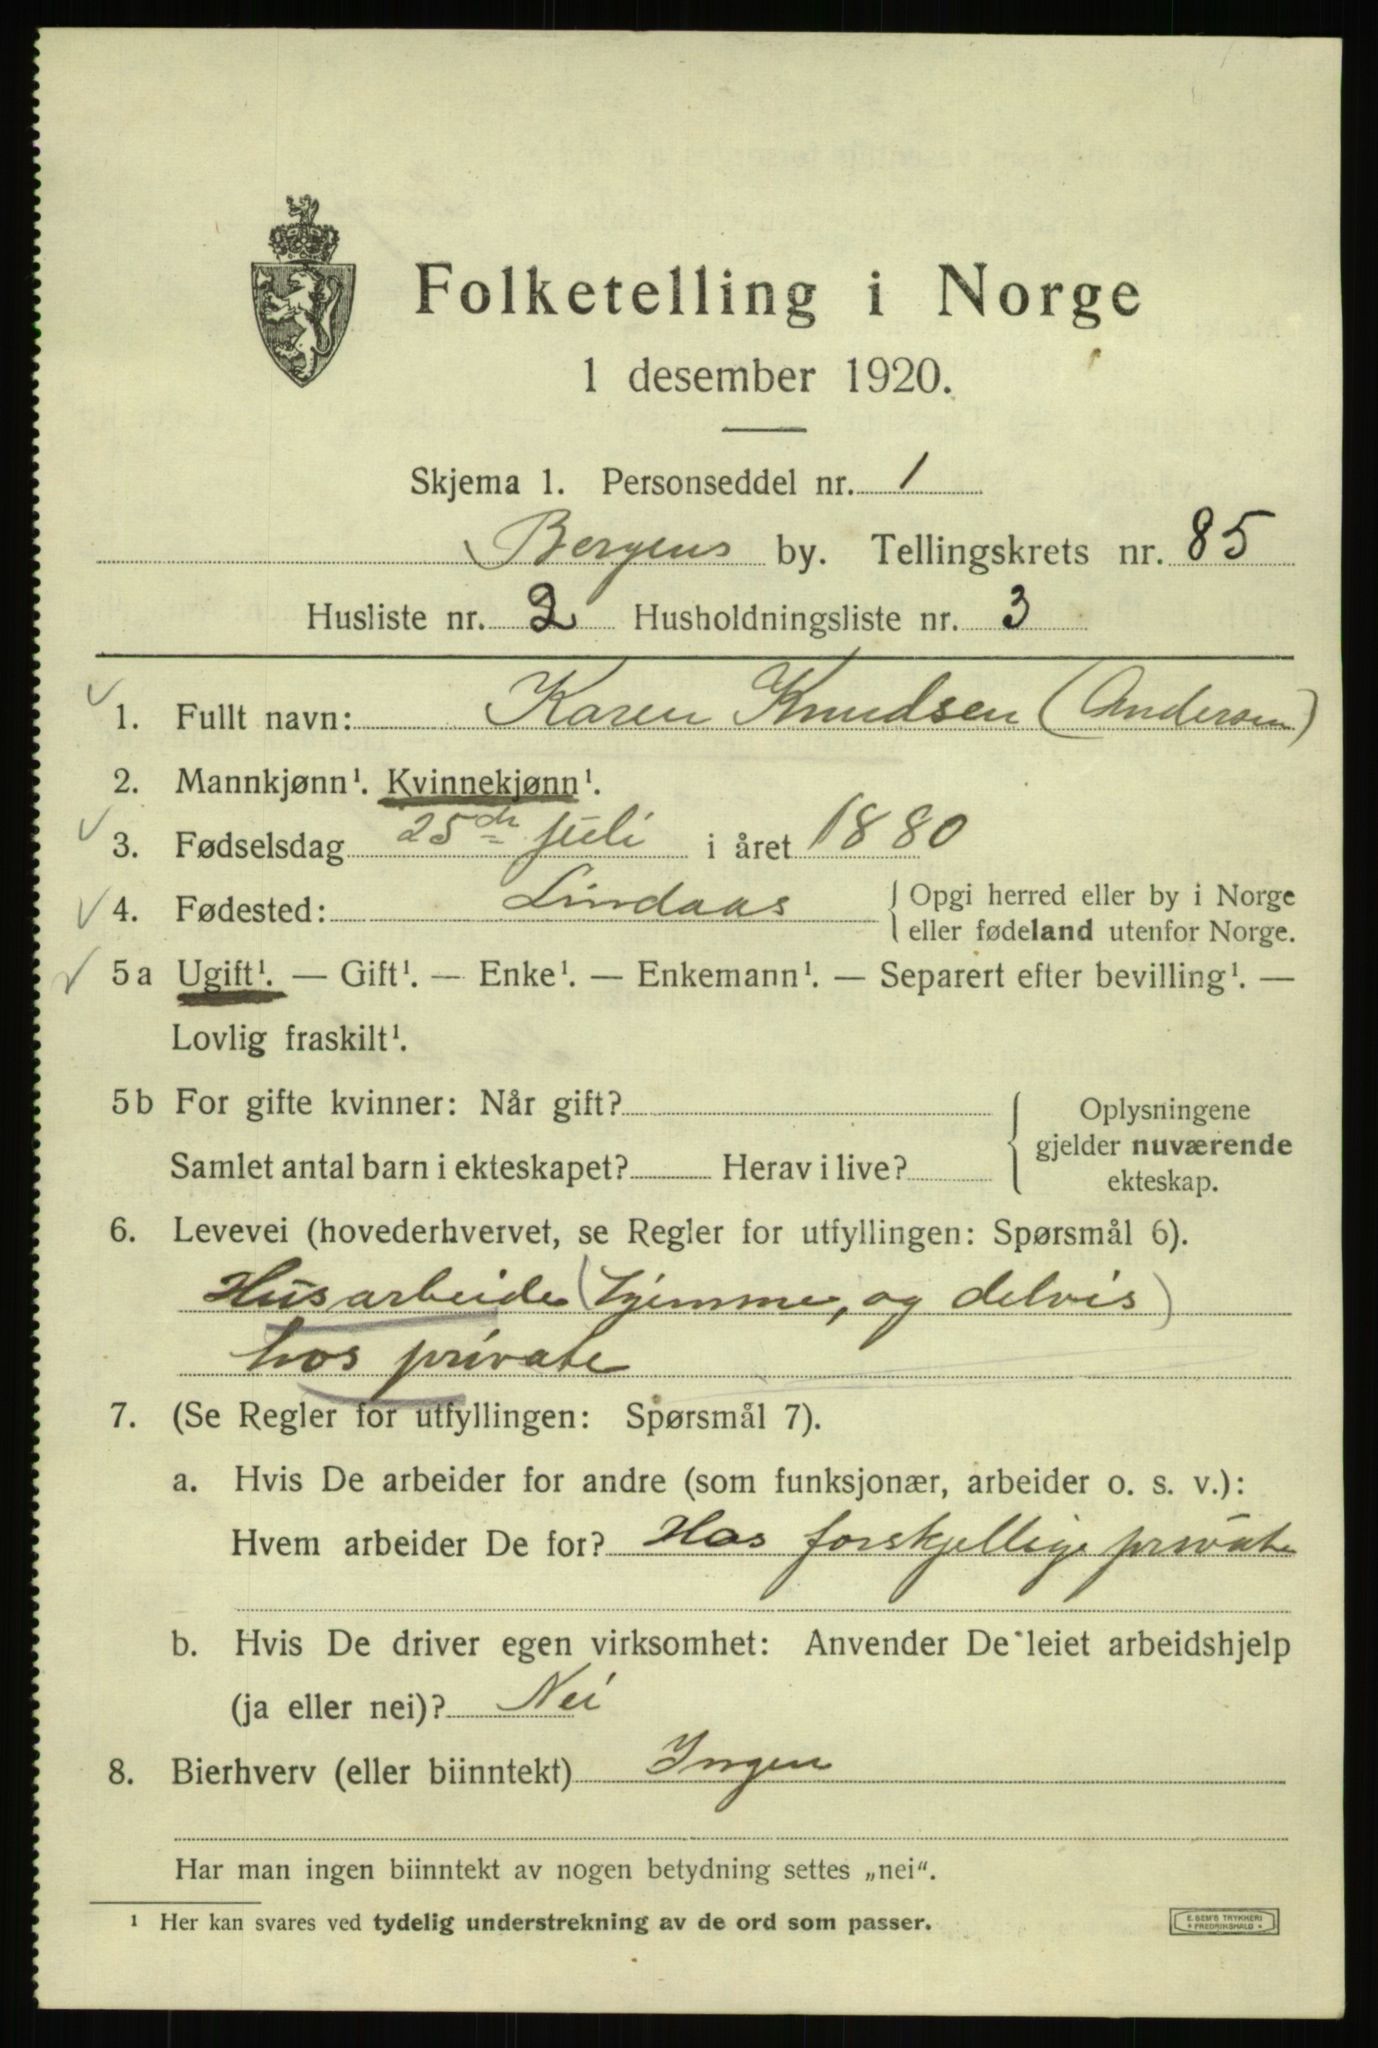 Folketelling i Norge
1 desember 1920.
Skjema 1. Personseddel nr. 1
Bergens by. Tellingskrets nr. 85
Husliste nr. 2 Husholdningsliste nr. 3
1. Fullt navn: Karen Knudsen (Andersen)
2. Mannkjønn¹. Kvinnekjønn¹.
3. Fødselsdag 25de juli i året 1880
4. Fødested: Lindaas { Opgi herred eller by i Norge
eller fødeland utenfor Norge.
5a Ugift¹. — Gift¹. — Enke¹. — Enkemann¹. — Separert efter bevilling¹. —
Lovlig fraskilt¹.
5b For gifte kvinner: Når gift?
Samlet antal barn i ekteskapet? Herav i live?
{ Oplysningene
gjelder nuværende
ekteskap.
6. Levevei (hovederhvervet, se Regler for utfyllingen: Spørsmål 6).
Husarbeide (hjemme, og delvis)
hos private
7. (Se Regler for utfyllingen: Spørsmål 7).
a. Hvis De arbeider for andre (som funksjonær, arbeider o. s. v.):
Hvem arbeider De for? Hos forskjellige private
b. Hvis De driver egen virksomhet: Anvender De leiet arbeidshjelp
(ja eller nei)? Nei
8. Bierhverv (eller biinntekt) Ingen
Har man ingen biinntekt av nogen betydning settes „nei“.
¹ Her kan svares ved tydelig understrekning av de ord som passer.
E. SEM'S TRYKKERI
* FREDRIKSHALD *